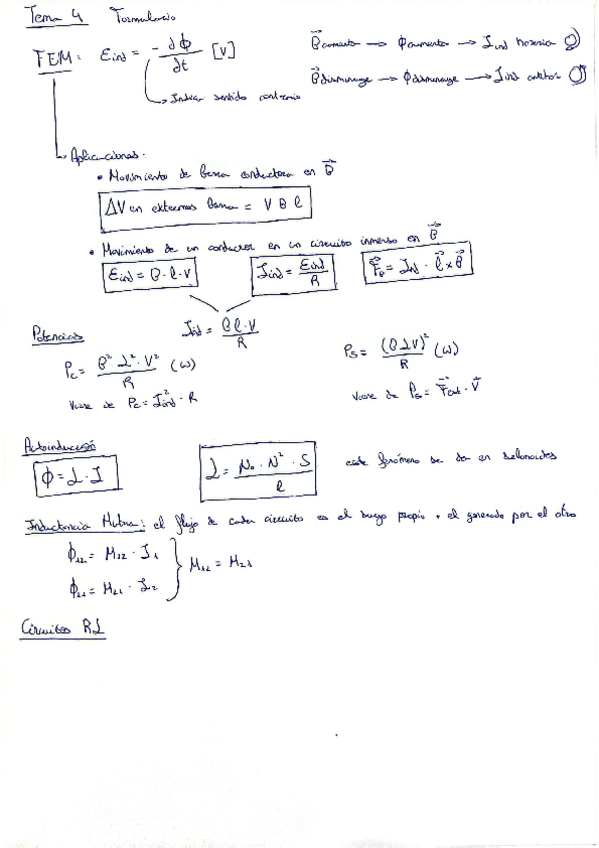 Tema 4 Formulario
FEM: Eind = - dϕ/dt [V]
B⃗ aumenta → ϕ aumenta → Iind horaria
↳ Indica sentido contrario
B⃗ disminuye → ϕ disminuye → Iind antihor
↳ Aplicaciones:
• Movimiento de barra conductora en B⃗
ΔV en extremos barra = V B l
• Movimiento de un conductor en un circuito inmerso en B⃗
Eind = B · l · V
Iind = Eind/R
F⃗B = Iind · l⃗ × B⃗
Iind = B l · V / R
Potencias
Pc = B² · L² · V² / R (W)
Ps = (B L V)² / R (W)
Viene de Pc = I²ind · R
Viene de Ps = F⃗ext · V⃗
Autoinducción
ϕ = L · I
L = N₀ · N² · S / l
este fenómeno se da en solenoides
Inductancia Mutua: el flujo de cada circuito es el suyo propio + el generado por el otro
ϕ12 = M12 · I1
M12 = M21
ϕ21 = M21 · I2
Circuitos RL